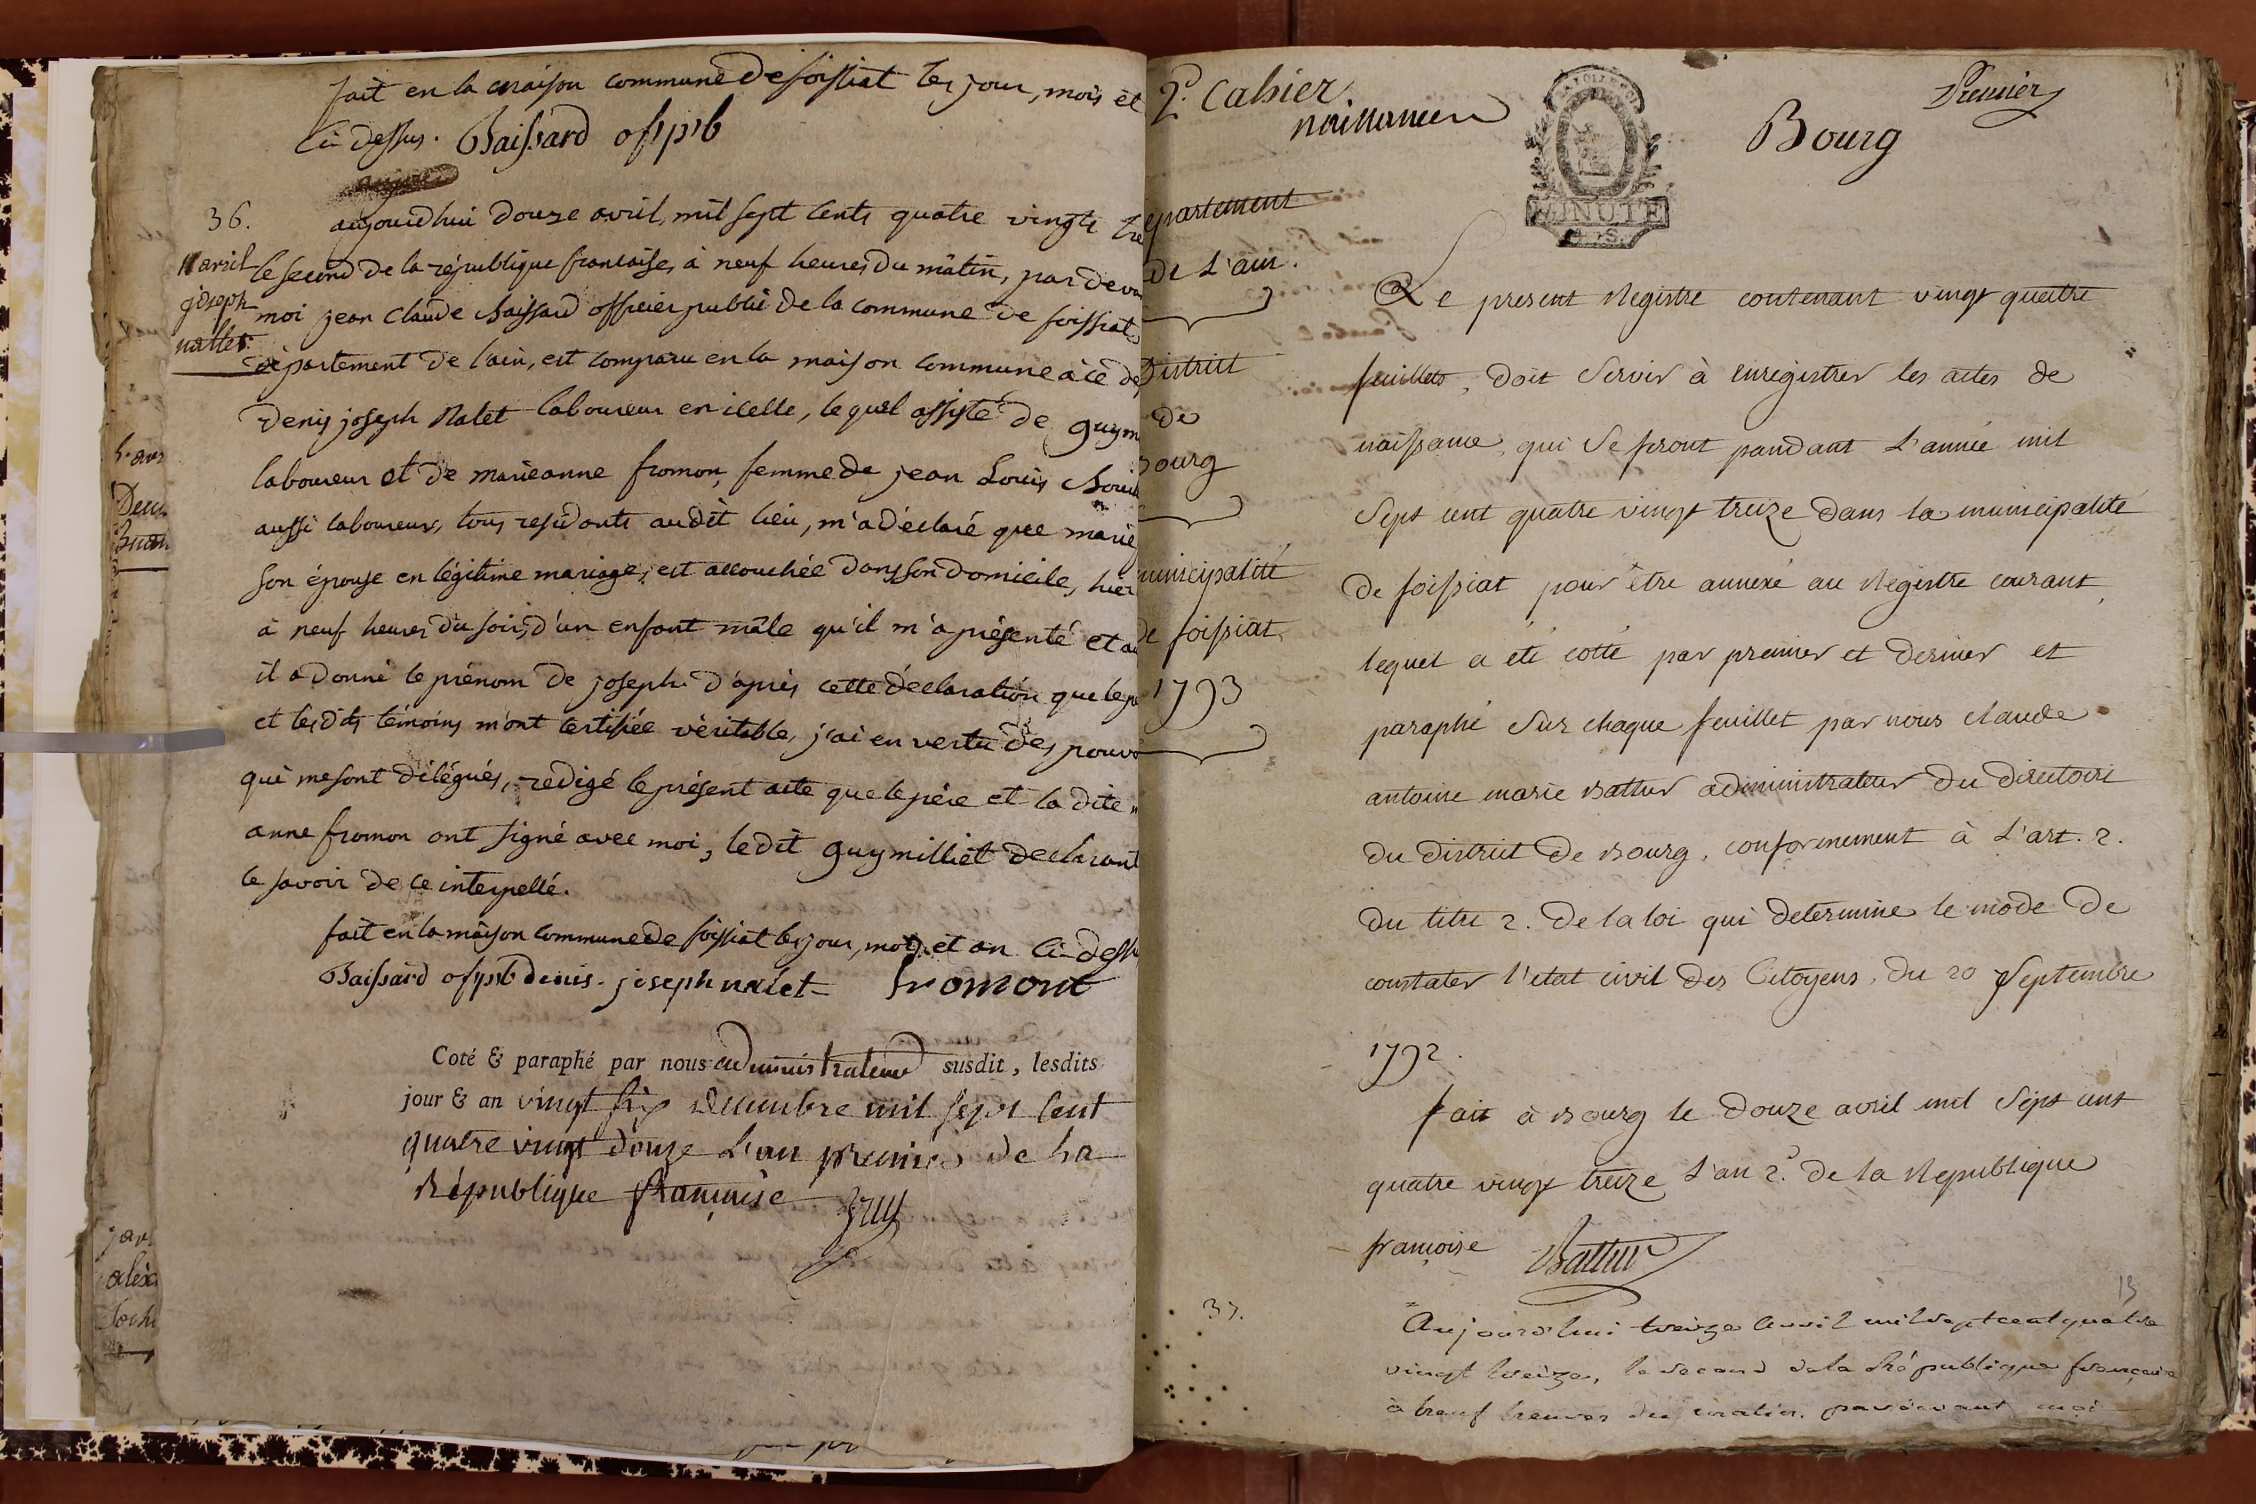 fait en la maison commune de foissiat les jour, mois et
ci dessus. Baissard of. pb
36.
aujourdhui douze avril, mil sept cents quatre vingts tre
11 avril
joseph
nallet
le second de la république francaise, à neuf heures du mâtin, par deva
moi jean claude baissard officier public de la commune de foissiat
département de l'ain, est comparu en la maison commune à ce de
Denis joseph Nalet laboureur en icelle, le quel assisté de guy m
laboureur et de marieanne fromon, femme de jean Louis
aussi laboureur, tous residants audit lieu, m'a déclaré que marie
son épouse en légitime mariage, est accouchée dans son domicile, hier
à neuf heures du soir, d'un enfant mâle qu'il m'a présenté et au
il a donné le prénom de joseph. d'après cette déclaration que le pe
et les dits témoins m'ont certifiée véritable, j'ai en vertu des pouvo
qui me sont délégués, redigé le présent acte que le père et la dite m
anne fromon ont signé avec moi, le dit guy milliet declarant
le savoir de ce interpellé.
fait en la maison commune de foissiat les jour, mois et an ci-dessu
Baissard of. pb denis. joseph nalet fromont
Coté & paraphé par nous administrateur susdit, lesdits
jour & an vingt six decembre mil sept cent
quatre vingt douze L'an premier de la
République française
2e. Cahier
naissances
MINUTE
Bourg
Premier
epartement
de L'ain.
District
de
Bourg
municipalité
de foissiat
1793
Le present Registre contenant vingt quatre
feuillets, doit servir à enregistrer les actes de
naissance, qui se feront pandant L'année mil
sept cent quatre vingt treize dans la municipalité
de foissiat pour être annexé au Registre courant,
lequel a été cotté par premier et dernier et
paraphé sur chaque feuillet par nous claude
antoine marie Battur administrateur du directoire
du district de Bourg, conformement à L'art. 2.
du titre 2. de la loi qui determine le mode de
constater l'etat civil des Citoyens, du 20 Septembre
1792.
fait à Bourg le douze avril mil sept cent
quatre vingt treize L'an 2e. de la Republique
françoise Battur
13
37.
Aujourd'hui treize avril mil sept cent quatre
vingt treize, le second de la République française
à neuf heures du matin, par devant moi